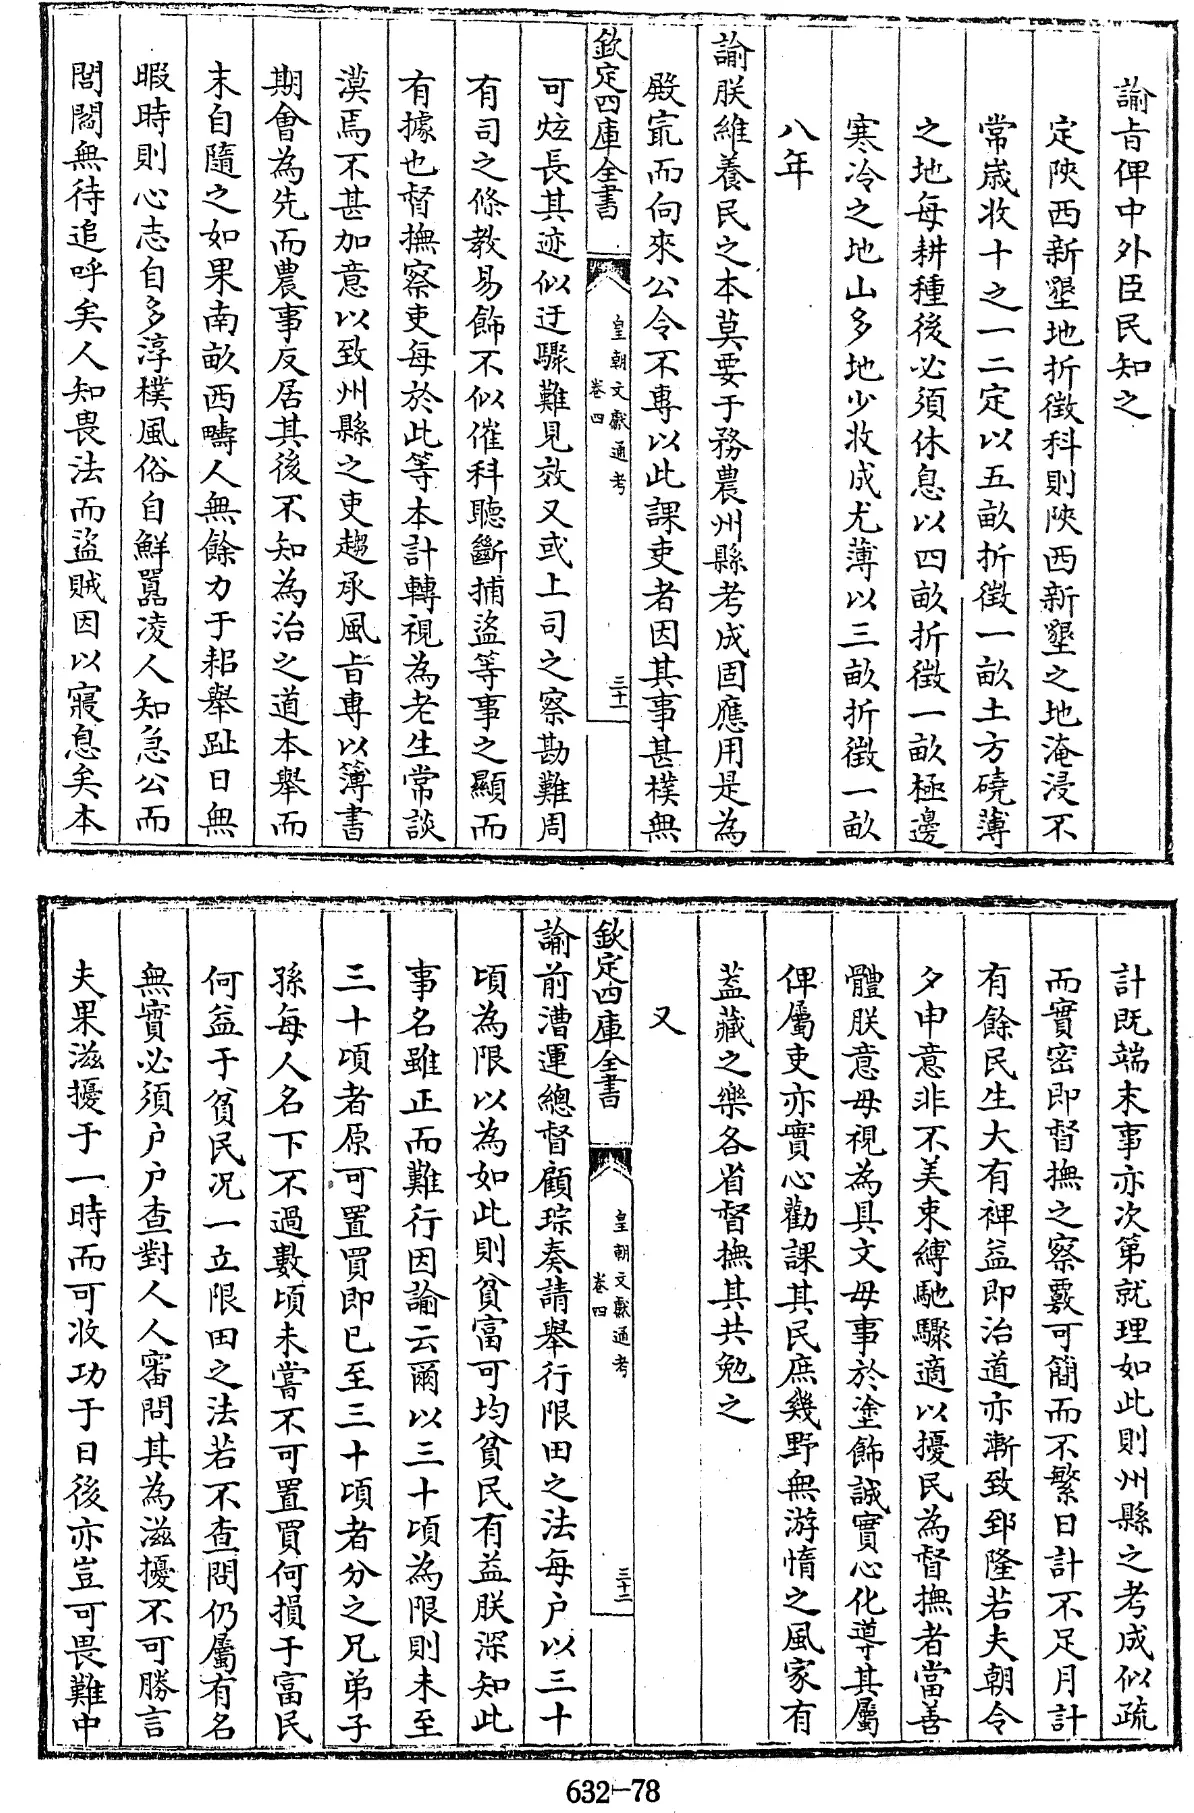 諭旨俾中外臣民知之
定陝西新墾地折徵科則陝西新墾之地淹浸不
常歲收十之一二定以五畝折徵一畝土方磽薄
之地每耕種後必須休息以四畝折徵一畝極邊
寒冷之地山多地少收成尤薄以三畝折徵一畝
八年
諭朕維養民之本莫要于務農州縣考成固應用是為
殿最而向來公令不專以此課吏者因其事甚樸無
欽定四庫全書
皇朝文獻通考
卷四
三十一
可炫長其迹似迂驟難見效又或上司之察勘難周
有司之條教易飾不似催科聽斷捕盜等事之顯而
有據也督撫察吏每於此等本計轉視為老生常談
漠焉不甚加意以致州縣之吏趨承風旨專以簿書
期會為先而農事反居其後不知為治之道本舉而
末自隨之如果南畝西疇人無餘力于耜舉趾日無
暇時則心志自多淳樸風俗自鮮囂凌人知急公而
閭閻無待追呼矣人知畏法而盜賊因以寢息矣本
計既端末事亦次第就理如此則州縣之考成似疏
而實密即督撫之察覈可簡而不繁日計不足月計
有餘民生大有裨益即治道亦漸致郅隆若夫朝令
夕申意非不美束縛馳驟適以擾民為督撫者當善
體朕意毋視為具文毋事於塗飾誠實心化導其屬
俾屬吏亦實心勸課其民庶幾野無游惰之風家有
蓋藏之樂各省督撫其共勉之
又
欽定四庫全書
皇朝文獻通考
卷四
三十二
諭前漕運總督顧琮奏請舉行限田之法每户以三十
頃為限以為如此則貧富可均貧民有益朕深知此
事名雖正而難行因諭云爾以三十頃為限則未至
三十頃者原可置買即已至三十頃者分之兄弟子
孫每人名下不過數頃未嘗不可置買何損于富民
何益于貧民况一立限田之法若不查問仍屬有名
無實必須户户查對人人審問其為滋擾不可勝言
夫果滋擾于一時而可收功于日後亦豈可畏難中
632-78